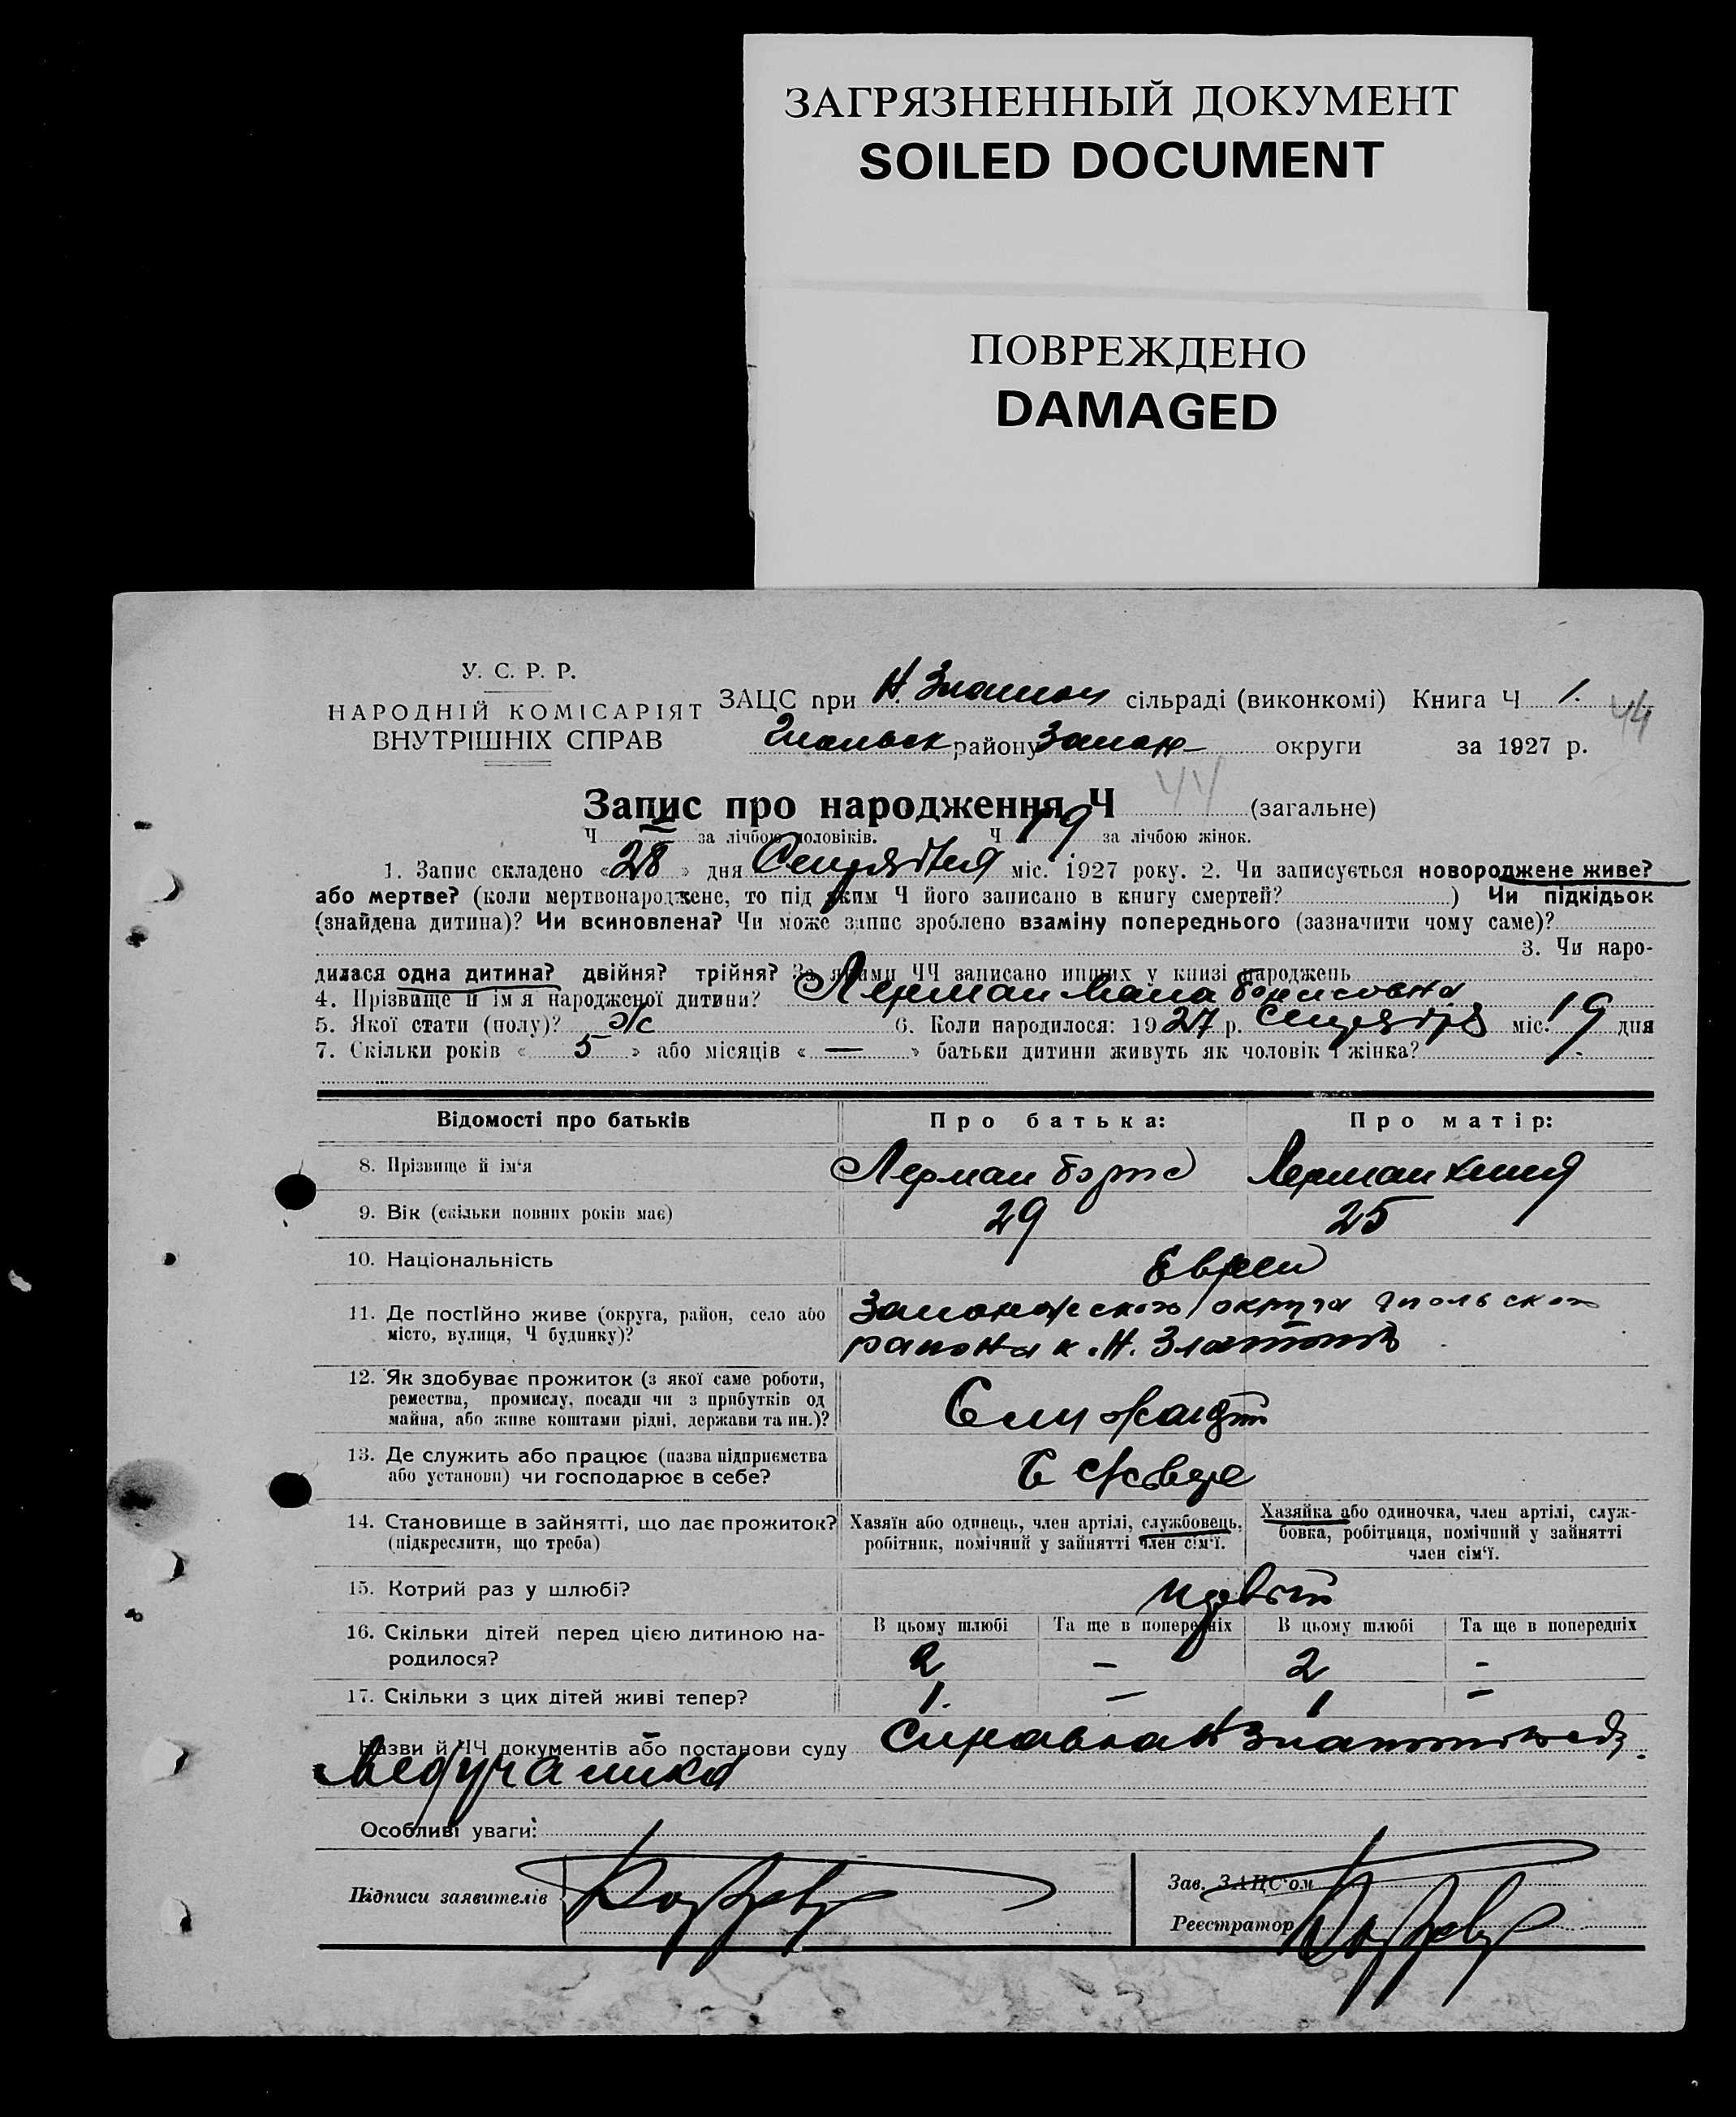 ЗАГРЯЗНЕННЫЙ ДОКУМЕНТ
SOILED DOCUMENT
ПОВРЕЖДЕНО
DAMAGED
У. С. Р. Р.
НАРОДНІЙ КОМІСАРІЯТ
ВНУТРІШНІХ СПРАВ
ЗАЦС при Н. Златоп сільраді (виконкомі) Книга Ч 1. 44
району Запор- округи за 1927 р.
Запис про народження Ч 44 (загальне)
Ч — за лічбою чоловіків. Ч 19 за лічбою жінок.
1. Запис складено «28» дня Сентября міс. 1927 року. 2. Чи записується новороджене живе?
або мертве? (коли мертвонароджене, то під яким Ч його записано в книгу смертей? ) Чи підкідьок
(знайдена дитина)? Чи всиновлена? Чи може запис зроблено взаміну попереднього (зазначити чому саме)?
3. Чи наро-
дилася одна дитина? двійня? трійня? За якими ЧЧ записано инших у книзі народжень
4. Прізвище й ім'я народженої дитини? Лерман Мана Борисовна
5. Якої стати (полу)? ж 6. Коли народилося: 1927 р. Сентября міс. 19 дня
7. Скільки років « 5 » або місяців « — » батьки дитини живуть як чоловік і жінка?
Відомості про батьків Про батька: Про матір:
8. Прізвище й ім'я Лерман Борис Лерман
9. Вік (скільки повних років має) 29 25
10. Національність Евреи
11. Де постійно живе (округа, район, село або
місто, вулиця, Ч будинку)?
Запорожского округа
района к. Н. Златополь
12. Як здобуває прожиток (з якої саме роботи,
ремества, промислу, посади чи з прибутків од
майна, або живе коштами рідні, держави та ин.)?
Служащий
13. Де служить або працює (назва підприємства
або установи) чи господарює в себе?
14. Становище в зайнятті, що дає прожиток?
(підкреслити, що треба)
Хазяїн або одинець, член артілі, службовець,
робітник, помічний у зайнятті член сім'ї.
Хазяйка або одиночка, член артілі, служ-
бовка, робітниця, помічний у зайнятті
член сім'ї.
15. Котрий раз у шлюбі? первый
16. Скільки дітей перед цією дитиною на-
родилося?
В цьому шлюбі Та ще в попередніх В цьому шлюбі Та ще в попередніх
2 — 2 -
17. Скільки з цих дітей живі тепер? 1. — 1 —
Назви й ЧЧ документів або постанови суду Справка
Медучастка
Особливі уваги:
Підписи заявителів
Зав. ЗАЦС'ом
Реєстратор